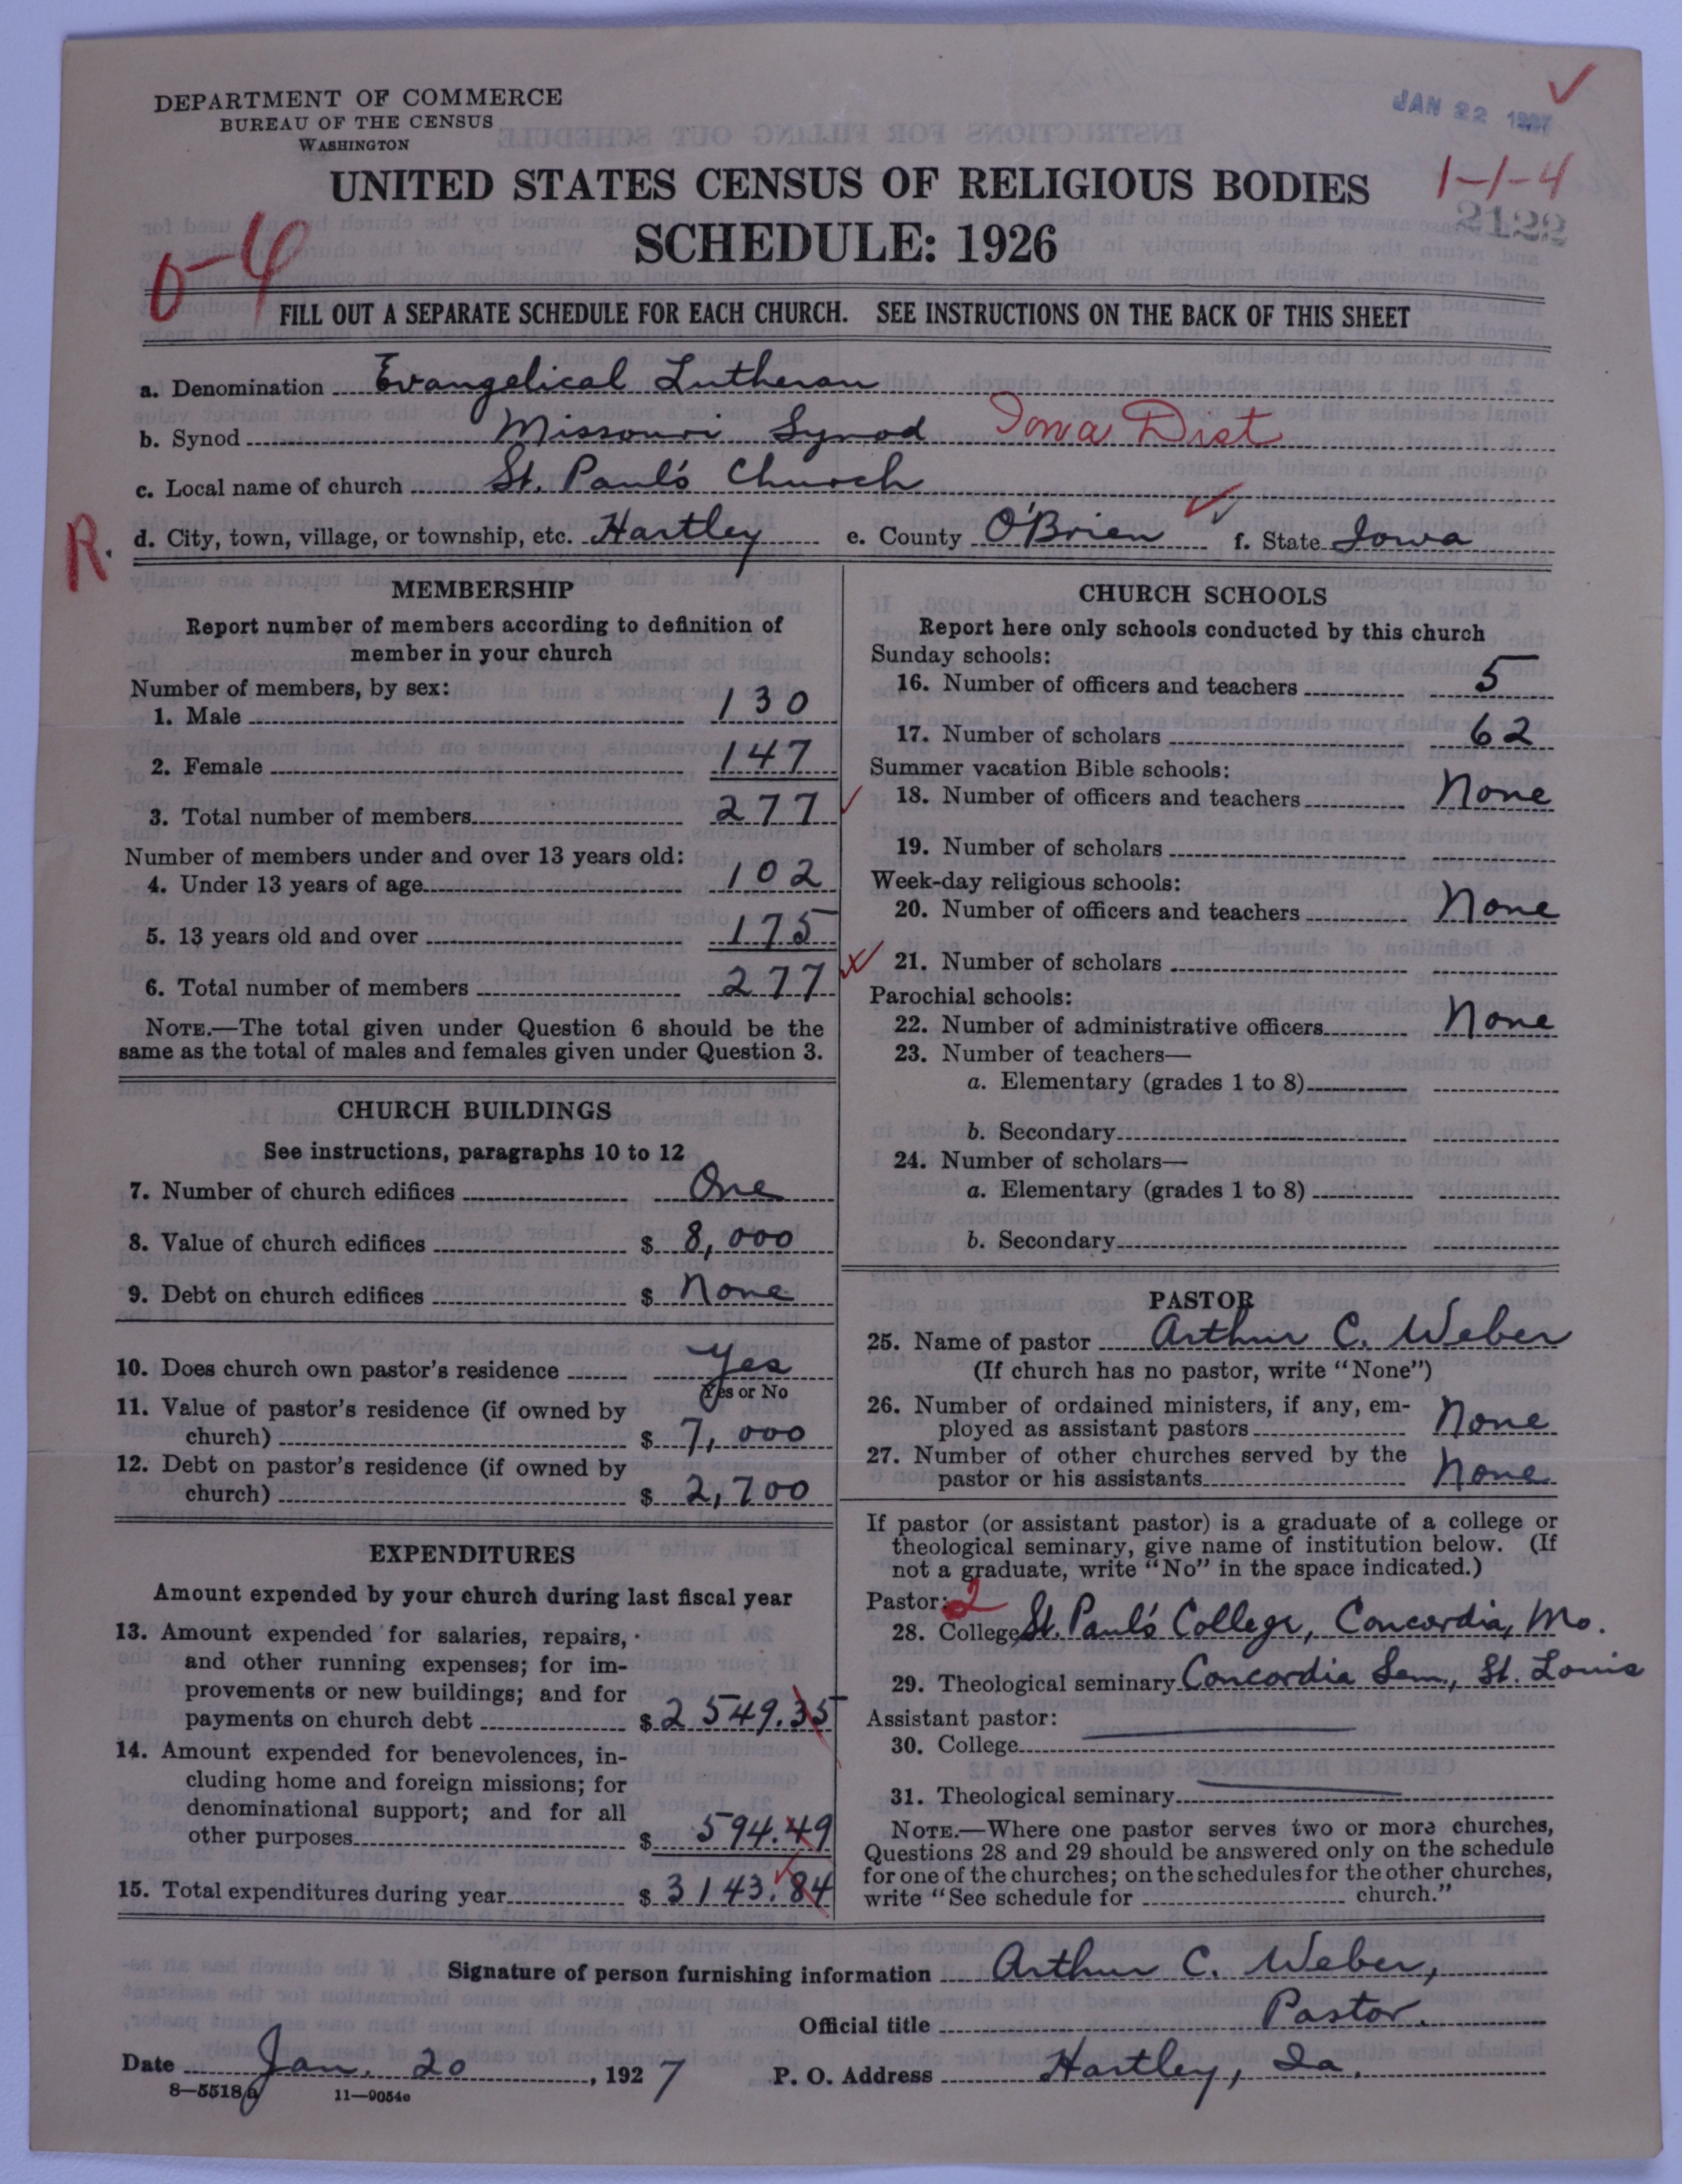 DEPARTMENT OF COMMERCE
BUREAU OF THE CENSUS
WASHINGTON
JAN 22 1927
UNITED STATES CENSUS OF RELIGIOUS BODIES
1-1-4
SCHEDULE: 1926
2122
0-4
FILL OUT A SEPARATE SCHEDULE FOR EACH CHURCH. SEE INSTRUCTIONS ON THE BACK OF THIS SHEET
a. Denomination Evangelical Lutheran
b. Synod Missouri Synod Iowa Dist
c. Local name of church St. Paul's Church
R. d. City, town, village, or township, etc. Hartley e. County O'Brien f. State Iowa
MEMBERSHIP
Report number of members according to definition of
member in your church
Number of members, by sex:
1. Male 130
2. Female 147
3. Total number of members 277
Number of members under and over 13 years old:
4. Under 13 years of age 102
5. 13 years old and over 175
6. Total number of members 277
NOTE.—The total given under Question 6 should be the
same as the total of males and females given under Question 3.
CHURCH BUILDINGS
See instructions, paragraphs 10 to 12
7. Number of church edifices One
8. Value of church edifices $ 8,000
9. Debt on church edifices $ None
10. Does church own pastor's residence Yes
Yes or No
11. Value of pastor's residence (if owned by
church) $ 7,000
12. Debt on pastor's residence (if owned by
church) $ 2,700
EXPENDITURES
Amount expended by your church during last fiscal year
13. Amount expended for salaries, repairs,
and other running expenses; for im-
provements or new buildings; and for
payments on church debt $ 2549.35
14. Amount expended for benevolences, in-
cluding home and foreign missions; for
denominational support; and for all
other purposes $ 594.49
15. Total expenditures during year $ 3143.84
CHURCH SCHOOLS
Report here only schools conducted by this church
Sunday schools:
16. Number of officers and teachers 5
17. Number of scholars 62
Summer vacation Bible schools:
18. Number of officers and teachers None
19. Number of scholars
Week-day religious schools:
20. Number of officers and teachers None
21. Number of scholars
Parochial schools:
22. Number of administrative officers None
23. Number of teachers—
a. Elementary (grades 1 to 8)
b. Secondary
24. Number of scholars—
a. Elementary (grades 1 to 8)
b. Secondary
PASTOR
25. Name of pastor Arthur C. Weber
(If church has no pastor, write "None")
26. Number of ordained ministers, if any, em-
ployed as assistant pastors None
27. Number of other churches served by the
pastor or his assistants None
If pastor (or assistant pastor) is a graduate of a college or
theological seminary, give name of institution below. (If
not a graduate, write "No" in the space indicated.)
Pastor: 2
28. College St. Paul's College, Concordia, Mo.
29. Theological seminary Concordia Sem., St. Louis
Assistant pastor:
30. College
31. Theological seminary
NOTE.—Where one pastor serves two or more churches,
Questions 28 and 29 should be answered only on the schedule
for one of the churches; on the schedules for the other churches,
write "See schedule for church."
Signature of person furnishing information Arthur C. Weber,
Official title Pastor.
Date Jan. 20, 1927 P. O. Address Hartley, Ia.
8—5518a 11—9054c